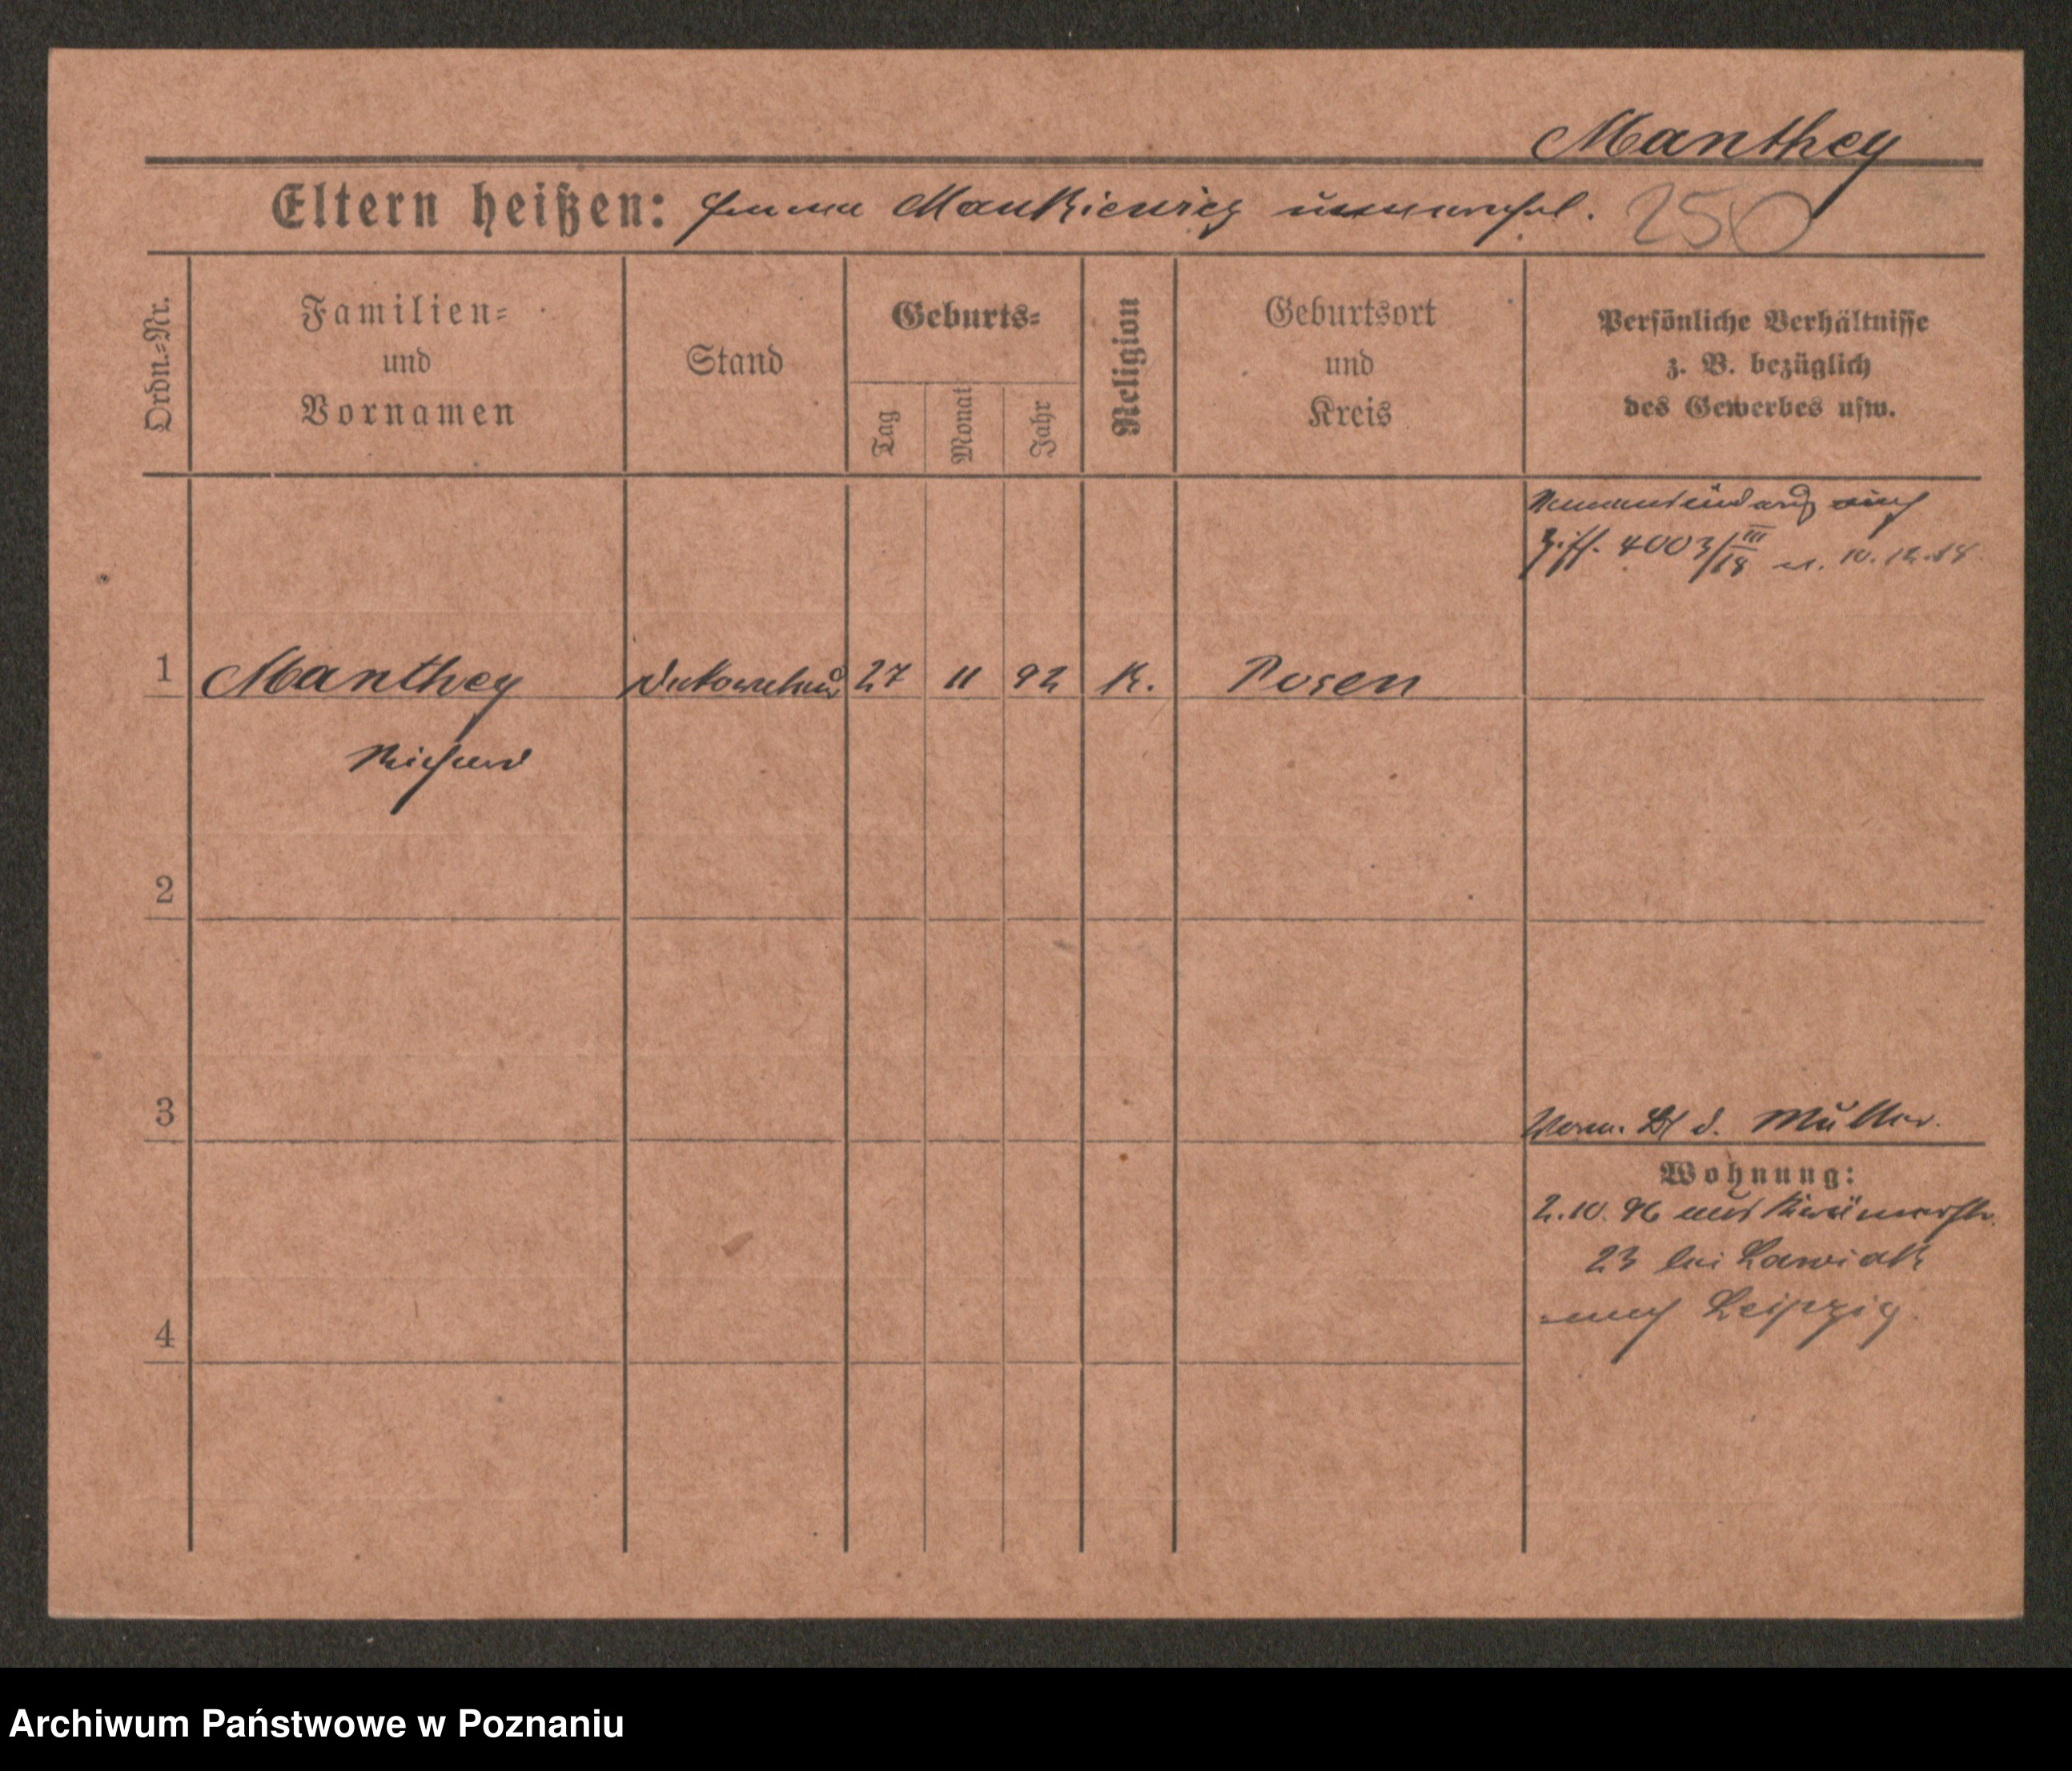 Manthey
Eltern heißen: Emma Mankiewicz unverehel. 250
Ordn.=Nr.
Familien=
und
Vornamen
Stand
Geburts=
Tag
Monat
Jahr
Religion
Geburtsort
und
Kreis
Persönliche Verhältnisse
z. B. bezüglich
des Gewerbes usw.
Ziff. 4003/III 18 v. 10.12.18
1 Manthey 27 11 92 K. Posen
Richard
2
3
Vorm. Müller.
Wohnung:
2.10.96 aus
23 bei Lawiak
nach Leipzig.
4
Archiwum Państwowe w Poznaniu